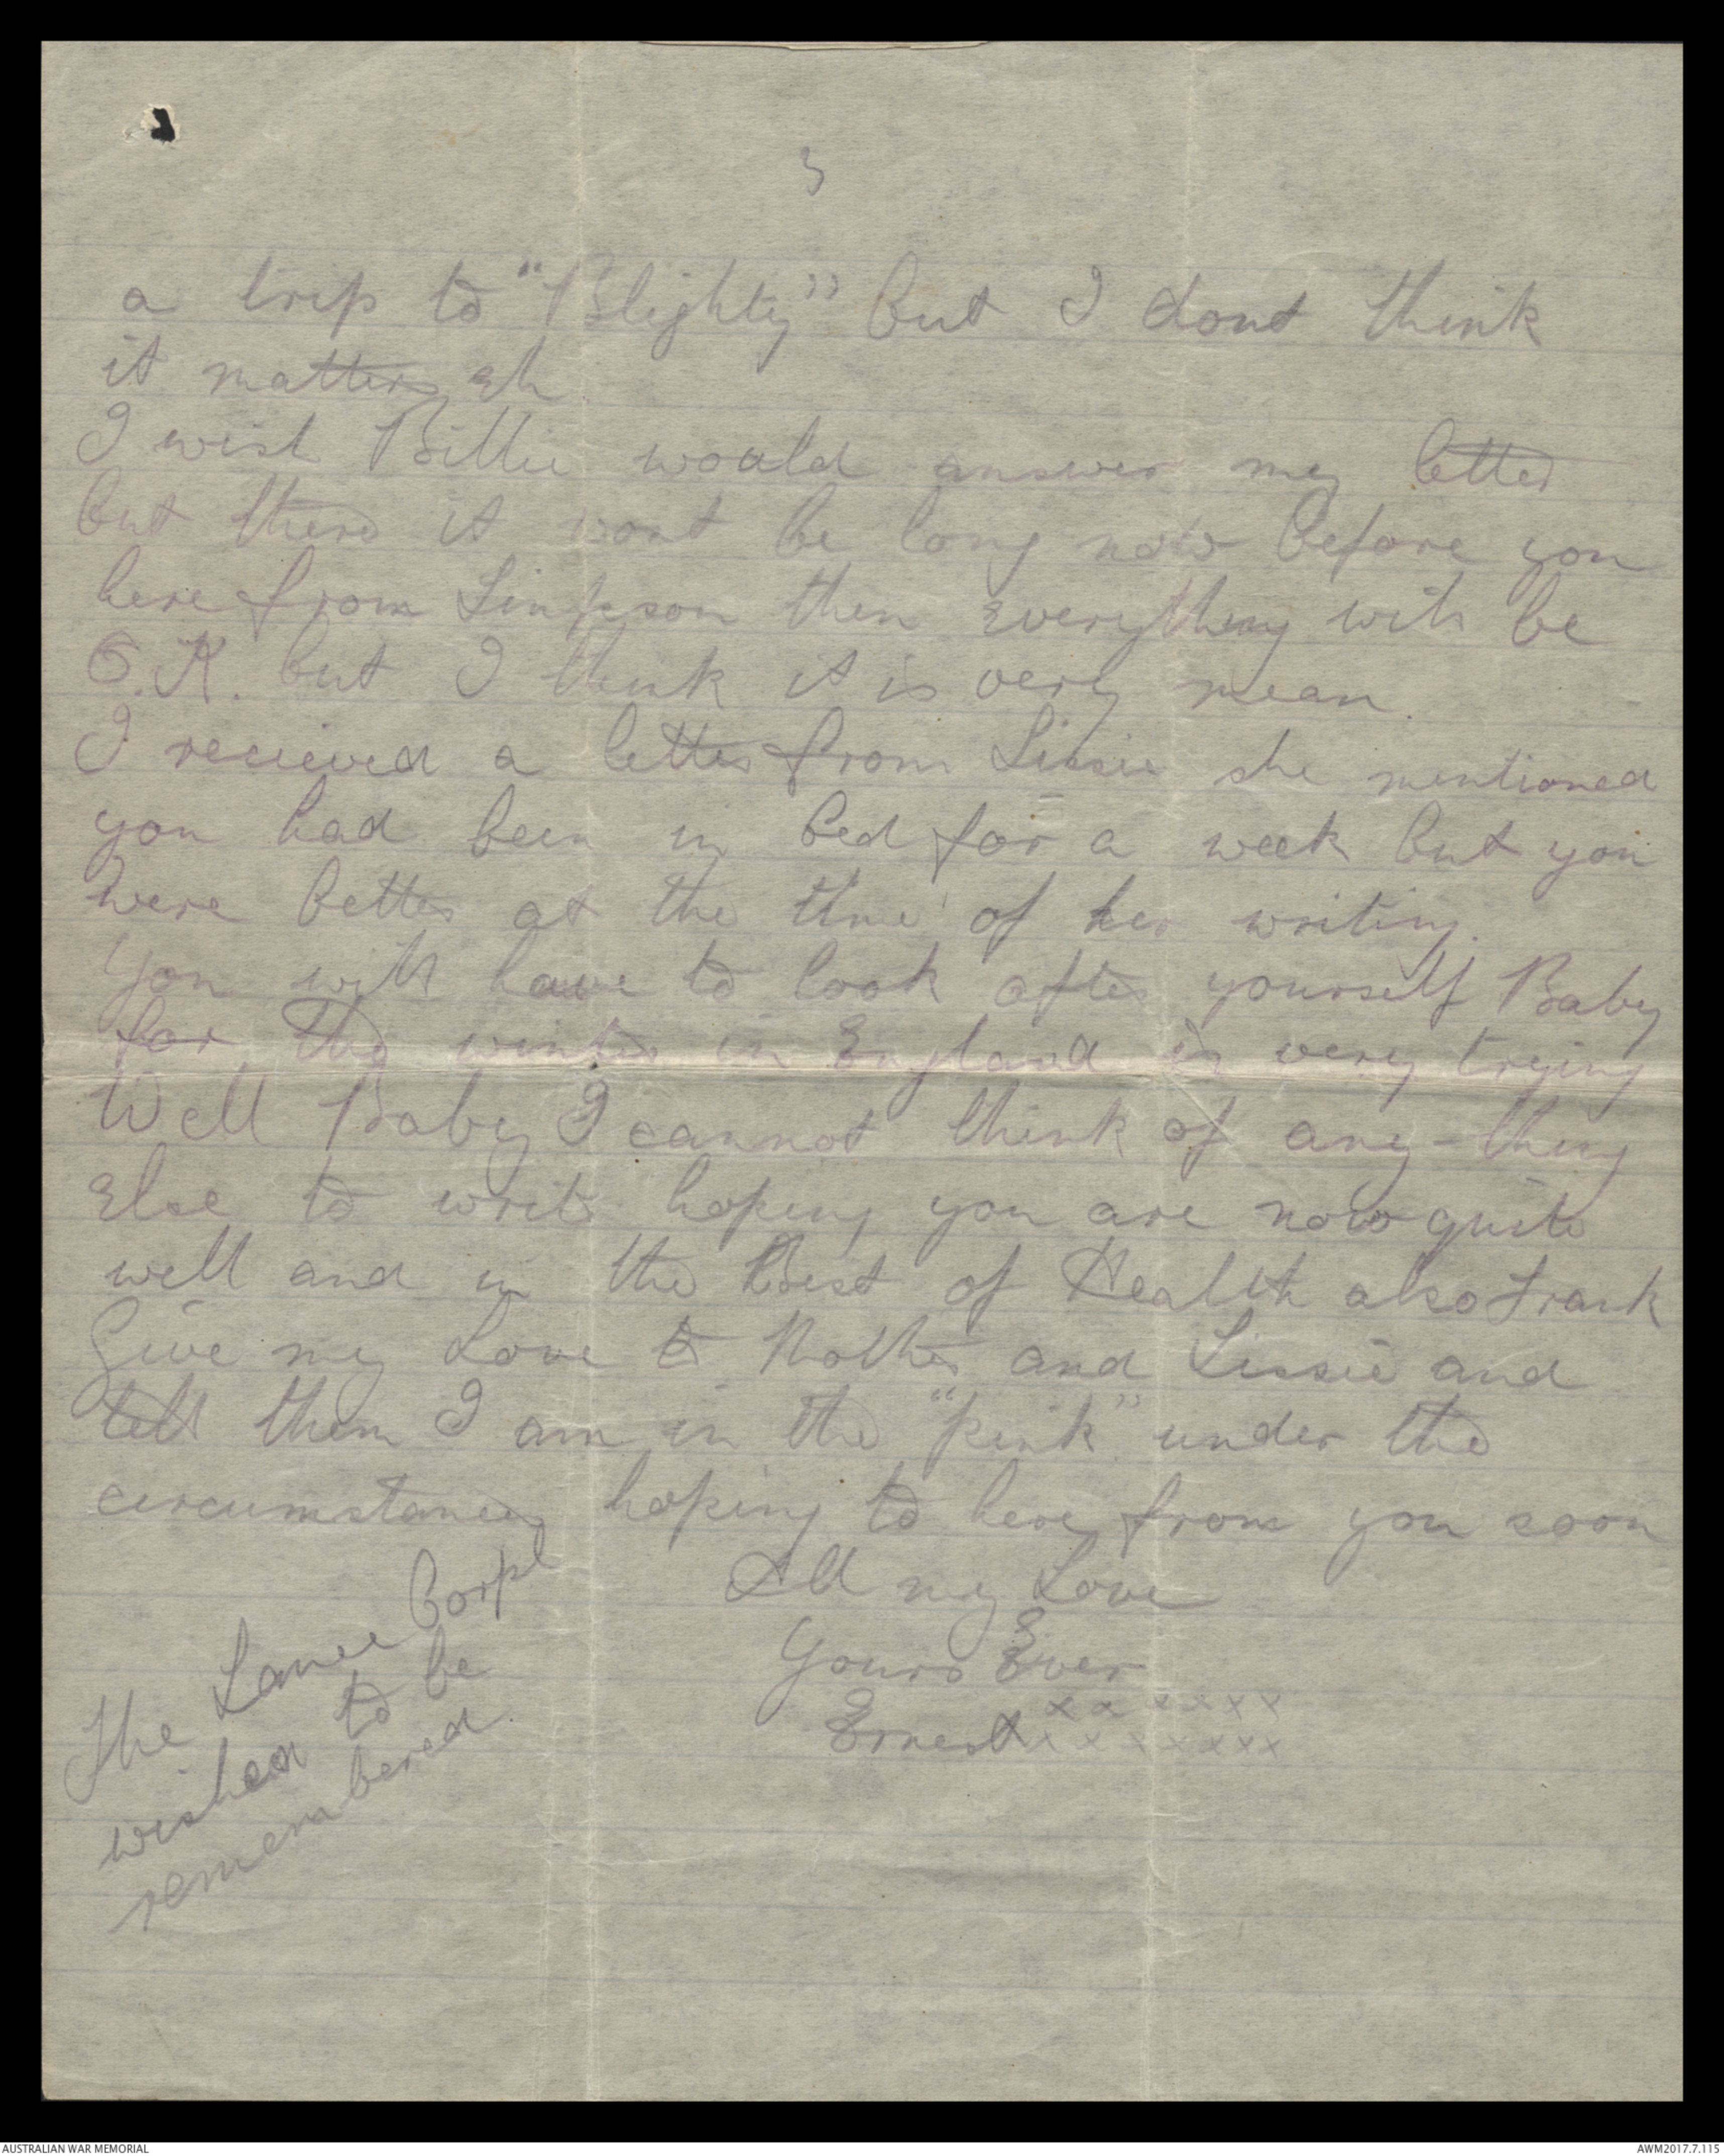 3
a trip to "Blighty" but I dont think
it matters eh
I wish Billie would answer my letter
but there it wont be long now before you
here from Simpson then everything will be
O.K. but I think it is very mean.
I recieved a letter from Lissie she mentioned
you had been in bed for a week but you
were better at the time of her writing.
You will have to look after yourself Baby
for the winter in England is very trying
Well Baby I cannot think of any-thing
Else to write hoping you are now quite
well and in the Best of Health also Frank
Give my Love to Mother and Lissie and
tell them I am in the "pink" under the
circumstances hoping to here from you soon
All my Love
Yours Ever
Ernest x x x x x x x
x x x x x x x
The Lance Corpl
wishes to be
remembered.
AUSTRALIAN WAR MEMORIAL
AWM2017.7.115